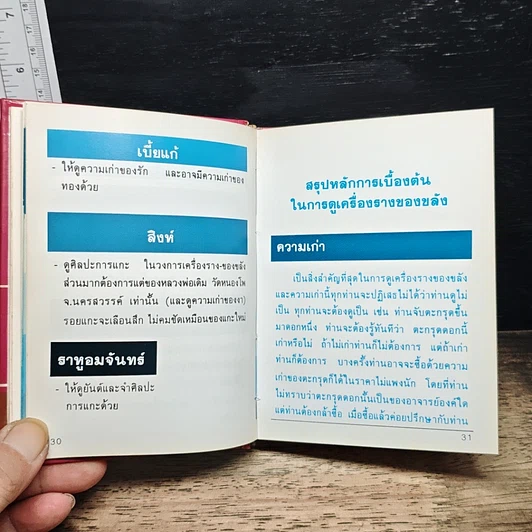 7
6
เบี้ยแก้
- ให้ดูความเก่าของรัก และอาจมีความเก่าของ
ทองด้วย
สิงห์
- ดูศิลปะการแกะ ในวงการเครื่องราง-ของขลัง
ส่วนมากต้องการแต่ของหลวงพ่อเดิม วัดหนองโพ
จ.นครสวรรค์ เท่านั้น (และดูความเก่าของงา)
รอยแกะจะเลือนสึก ไม่คมชัดเหมือนของแกะใหม่
ราหูอมจันทร์
- ให้ดูยันต์และจำศิลปะ
การแกะด้วย
30
สรุปหลักการเบื้องต้น
ในการดูเครื่องรางของขลัง
ความเก่า
เป็นสิ่งสำคัญที่สุดในการดูเครื่องรางของขลัง
และความเก่านี้ทุกท่านจะปฏิเสธไม่ได้ว่าท่านดูไม่
เป็น ทุกท่านจะต้องดูเป็น เช่น ท่านจับตะกรุดขึ้น
มาดอกหนึ่ง ท่านจะต้องรู้ทันทีว่า ตะกรุดดอกนี้
เก่าหรือไม่ ถ้าไม่เก่าก็ไม่ต้องการ แต่ถ้าเก่า
ท่านก็ต้องการ บางครั้งท่านอาจจะซื้อด้วยความ
เก่าของตะกรุดก็ได้ในราคาไม่แพงนัก โดยที่ท่าน
ไม่ทราบว่าตะกรุดดอกนี้เป็นของอาจารย์องค์ใด
แต่ท่านต้องกล้าซื้อ เมื่อซื้อแล้วค่อยปรึกษากับท่าน
31